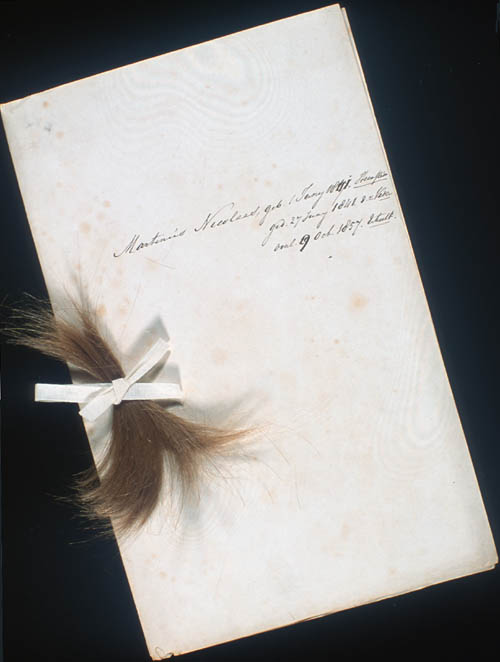 Martinus Nicolaas, geb. 1 Juny 1841.
ged. 27 Juny 1841
overl. 9 Oct. 1857. Utrecht.